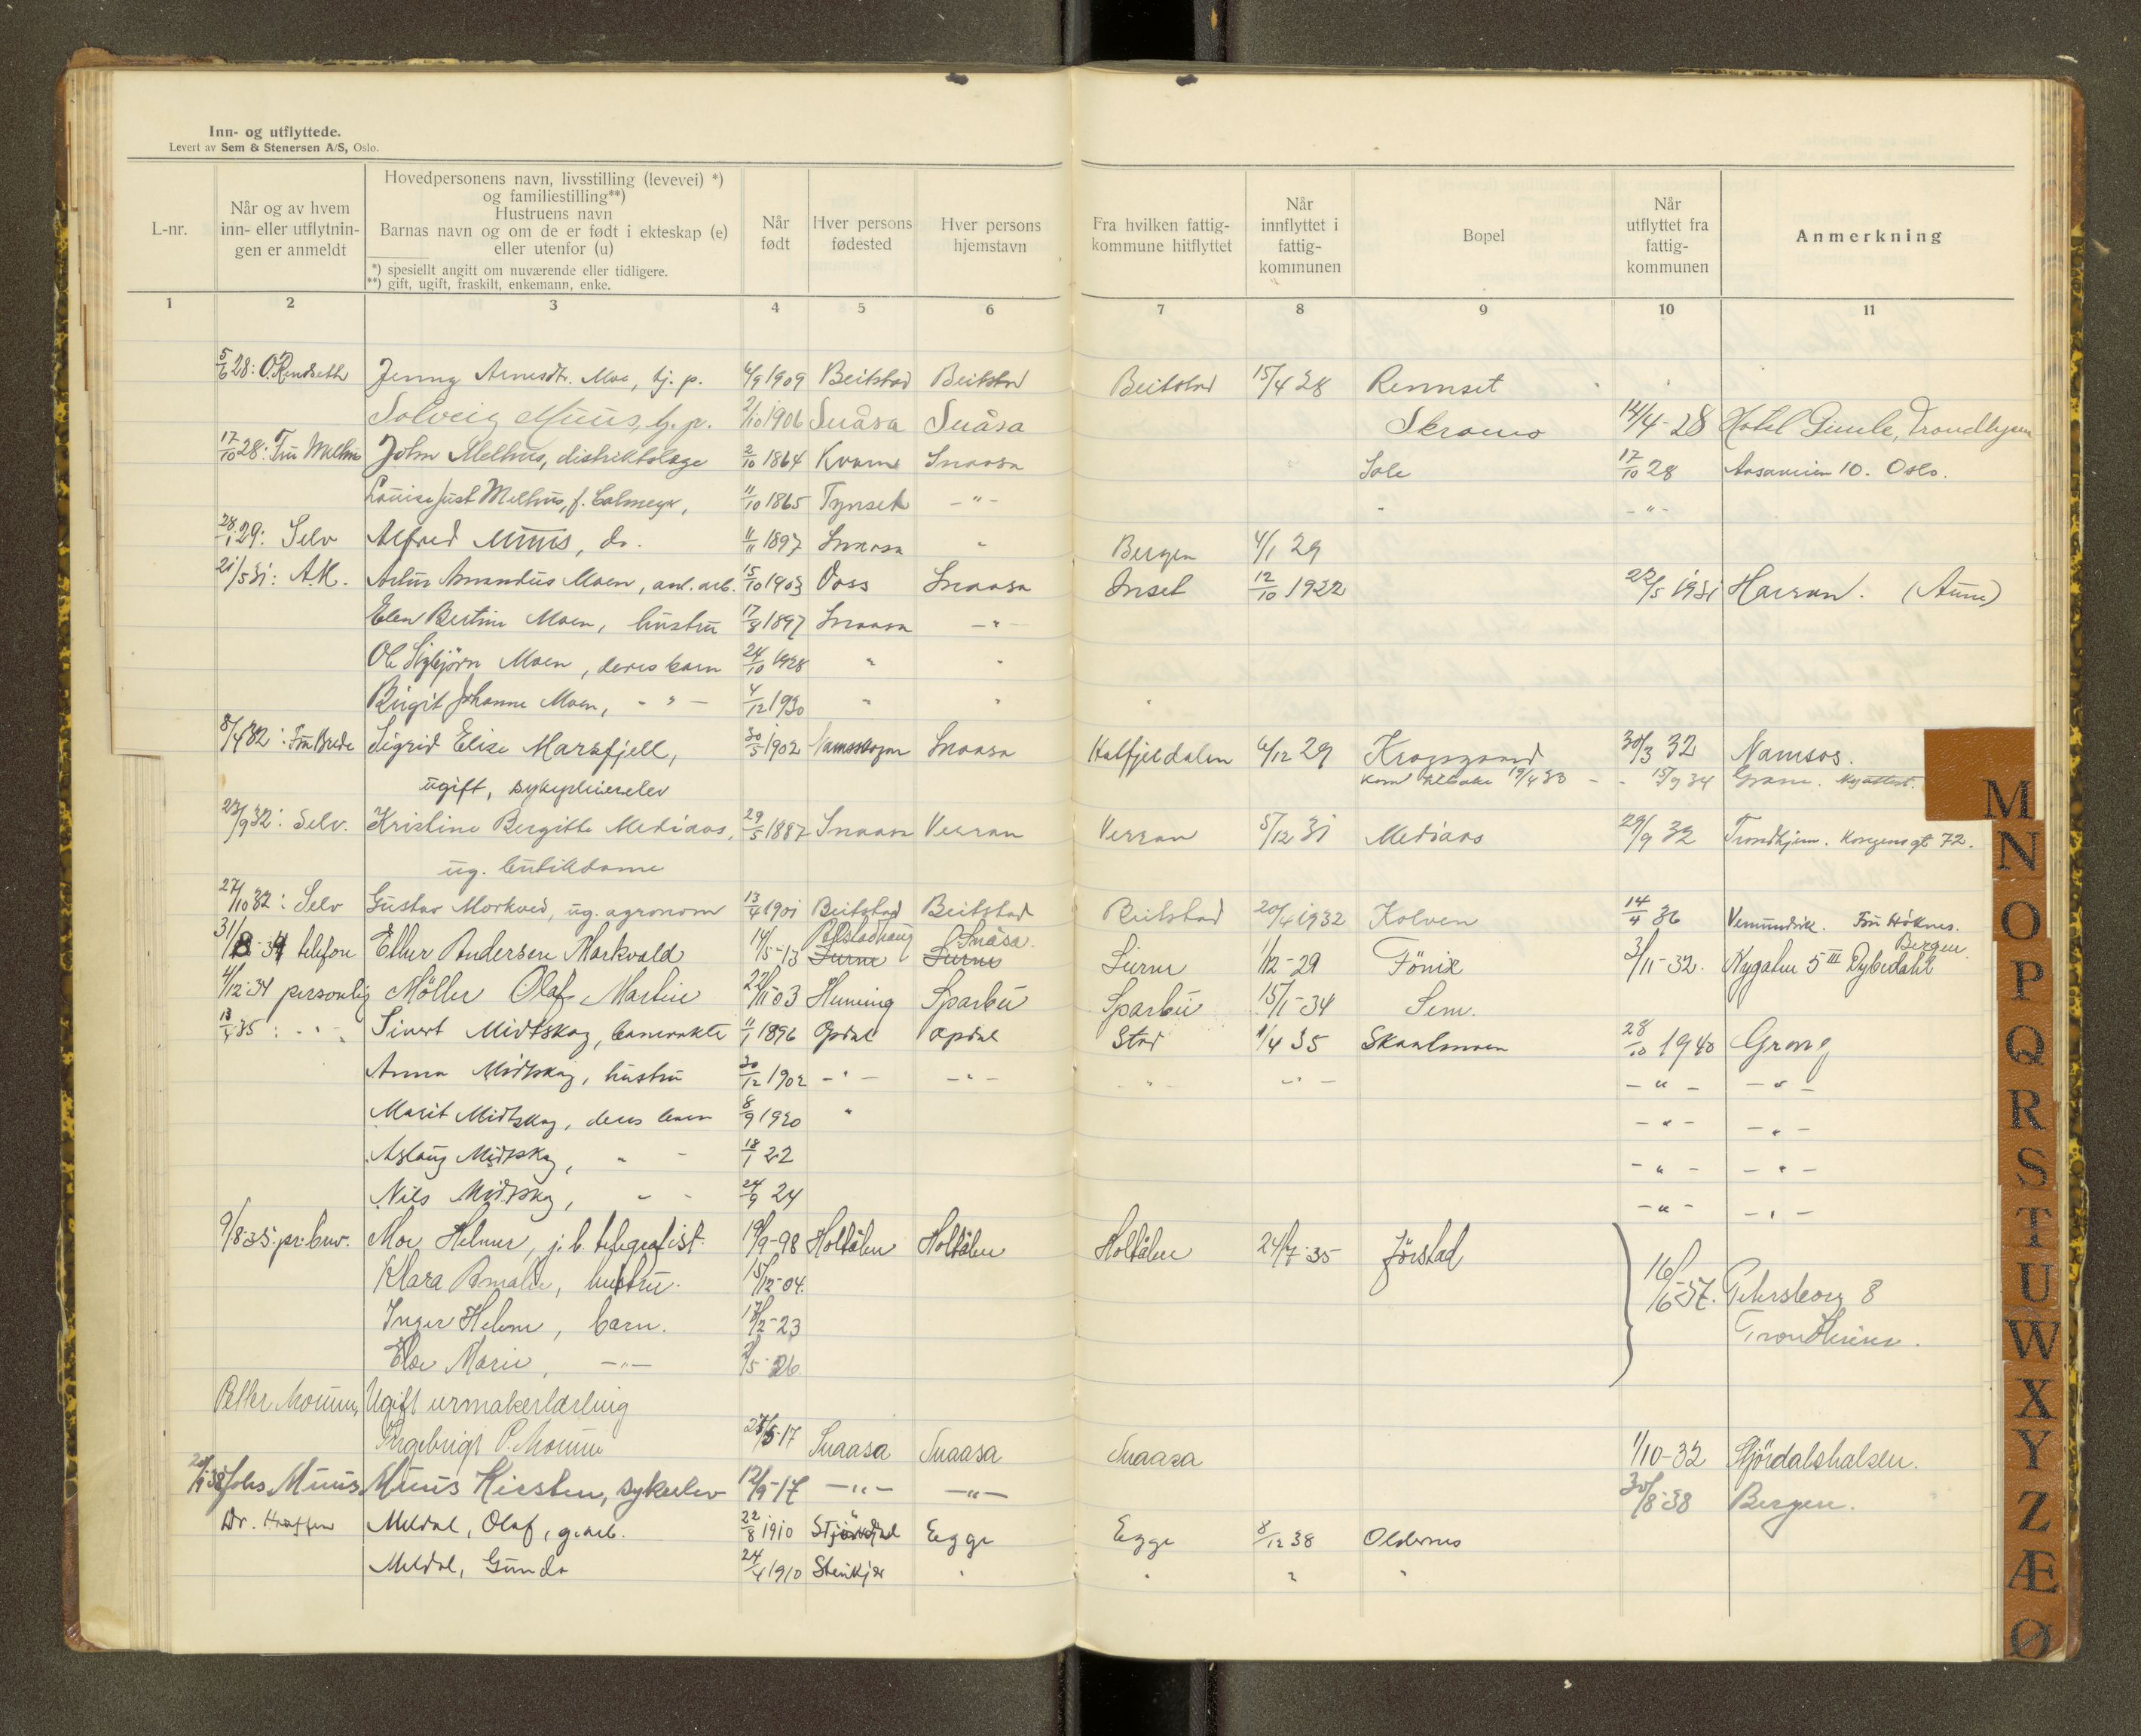 Inn- og utflyttede.
Levert av Sem & Stenersen A/S, Oslo.
L-nr.
Når og av hvem inn- eller utflytnin- gen er anmeldt
Hovedpersonens navn, livsstilling (levevei) *) og familiestilling**)
Hustruens navn
Barnas navn og om de er født i ekteskap (e) eller utenfor (u)
*) spesiellt angitt om nuværende eller tidligere.
**) gift, ugift, fraskilt, enkemann, enke.
Når født
Hver persons fødested
Hver persons hjemstavn
Fra hvilken fattig- kommune hitflyttet
Når innflyttet i fattig- kommunen
Bopel
Når utflyttet fra fattig- kommunen
Anmerkning
1 2 3 4 5 6 7 8 9 10 11
5/6 28: O. Rendseth Jenny Arnesdtr. Moe, tj. p. 4/9 1909 Beitstad Beitstad Beitstad 15/4 28 Rennset
Solveig Muus, tj. p. 2/10 1906 Snåsa Snåsa 14/4-28 Hotel Gimle, Trondhjem
17/10 28: Fru Melhus John Melhus, distriktslæge 2/10 1864 Kvam Snaasa Sole 17/10 28 10. Oslo.
Louise Just Melhus, f. Calmeyer, 11/10 1865 Tynset -"- -"-
28/1 29: Selv Alfred Muus, do. 11/11 1897 Snaasa " Bergen 4/1 29
21/5 31: A.M. Artur Amandus Moen, anl. arb. 15/10 1903 Voss Snaasa Inset 12/10 1922 22/5 1931 Harran. (Aune)
Elen Bertine Moen, hustru 17/8 1897 Snaasa -"-
Ole Sigbjörn Moen, deres barn 24/10 1928 " "
Birgit Johanne Moen, -"- 4/12 1930 " " "
8/4 32: Fru Brede Sigrid Elise Marsfjell, 30/5 1902 Namsskogan Snaasa Hatfjeldalen 6/12 29 Krogsgaard 30/3 32 Namsos.
ugift, sykepleierelev kom tilbake 19/4 33 - - 15/9 34 Grane. Ny attest.
23/9 32: Selv. Kristine Bergitte Mediaas, 29/5 1887 Snaasa Verran Verran 5/12 31 Mediaas 29/9 32 Trondhjem. Kongensgt 72.
ug. butikdame
27/10 32: Selv Gustav Morkved, ug. agronom 13/4 1901 Beitstad Beitstad Beitstad 20/4 1932 Kolven 14/4 36
31/8-34 telefon Ellur Andersen Markvald 14/5-13 Lierne Snåsa. Lierne Lierne 1/12-29 Fönix 3/11-32. Nygaten 5 III Dybedahl Bergen
4/12-34 personlig Möller Olaf Martin 22/11-03 Henning Sparbu Sparbu 15/1-34 Sem.
13/4 35: -"- Sivert Midtskog, banevakte 11/1 1896 Opdal Opdal Stod 1/4 35 Skaalmoen 28/10 1940 Grong
Anna Midtskog, hustru 30/12 1902 -"- -"- -"- -"- -"- -"-
Marit Midtskog, deres barn 8/9 1920 " -"- -"-
Aslaug Midtskog, " - 18/1 22 -"- -"-
Nils Midtskog, " - 24/9 24 -"- -"-
9/8-35: pr. brev. Moe Helmer, j. b. telegrafist. 19/9-98 Holtålen Holtålen Holtålen 24/7-35 Jörstad
Klara Amalie, hustru. 15/12-04. 16/6-37. Petersborg 8
Inger Helene, barn. 17/2-23 Trondheim.
Else Marie, -"- 2/5-26.
Petter Moum, Ugift urmakerlærling
Ingebrigt P. Moum 25/5-17 Snaasa Snaasa Snaasa 1/10-32 Stjördalshalsen.
Johs Muus Muus Kirsten, sykeelev 12/9-17 -"- -"- 30/8-38 Bergen.
Dr. Meldal, Olaf, g. arb. 22/8 1910 Stjördal Egge Egge 8/12 38 Oldernes
Meldal, Gunda 24/4 1910 Steinkjer " " " "
M
N
O
P
Q
R
S
T
U
W
X
Y
Z
Æ
Ø